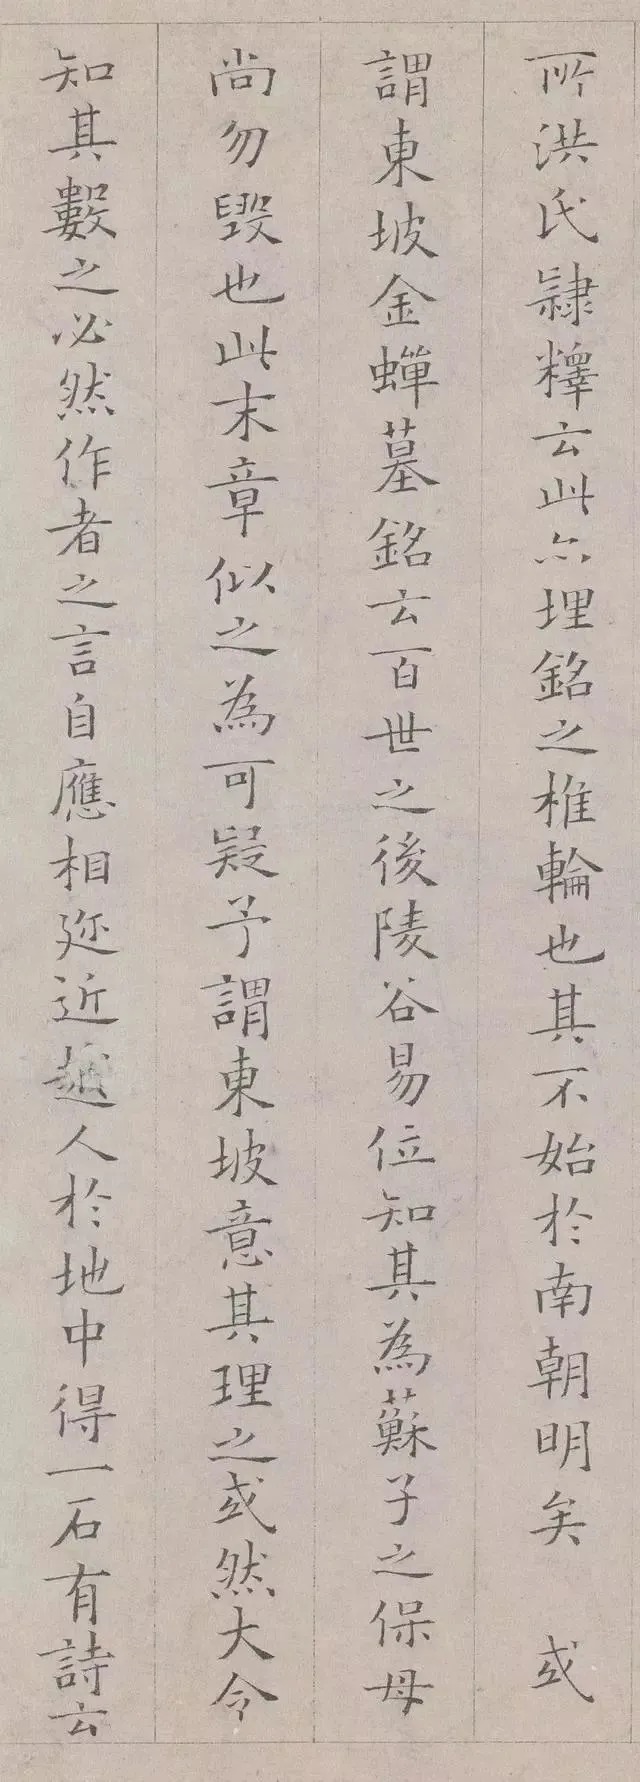 所洪氏隸釋云此亦埋銘之椎輪也其不始於南朝明矣 或
謂東坡金蟬墓銘云百世之後陵谷易位知其為蘇子之保母
尚勿毀也此末章似之為可疑予謂東坡意其理之或然大令
知其數之必然作者之言自應相迩近越人於地中得一石有詩云